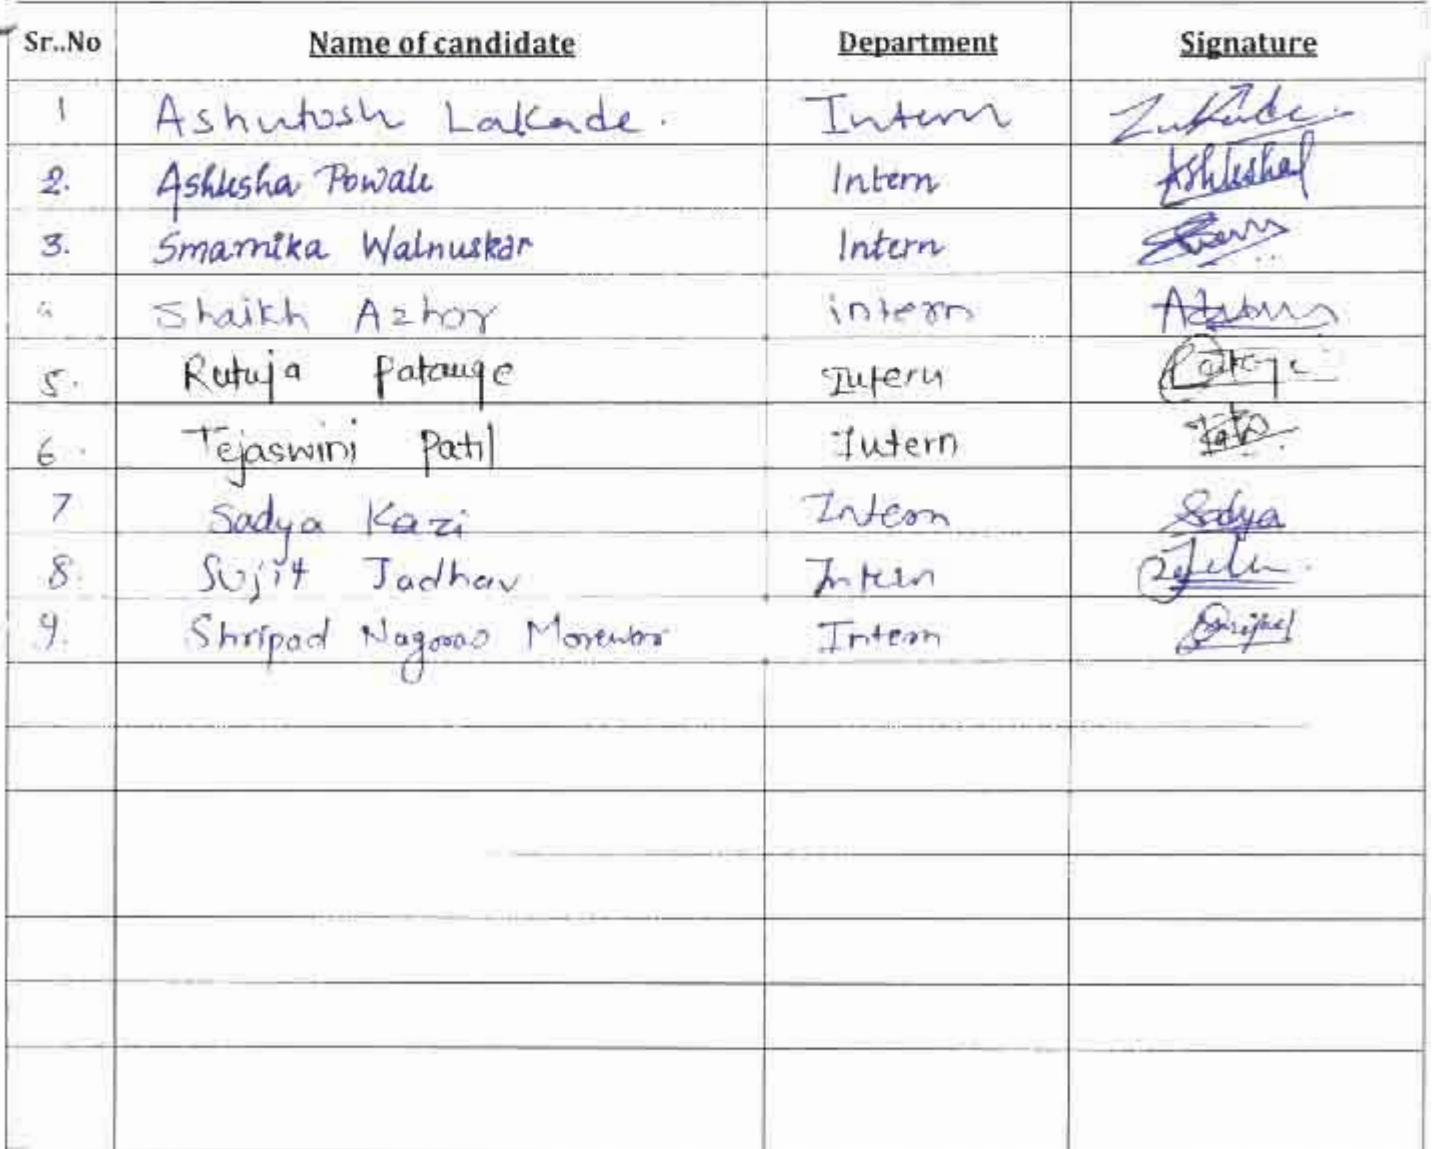 Sr..No Name of candidate Department Signature
1 Ashutosh Lakade. Intern Lakade
2. Ashlesha Powale Intern Ashlesha
3. Smarnika Walnuskar Intern
Shaikh Azhar intern
5. Rutuja Patange Intern
6. Tejaswini Patil Intern
7 Sadya Kazi Intern Sadya
8. Sujit Jadhav Intern
9. Shripad Nagorao Intern Shripad